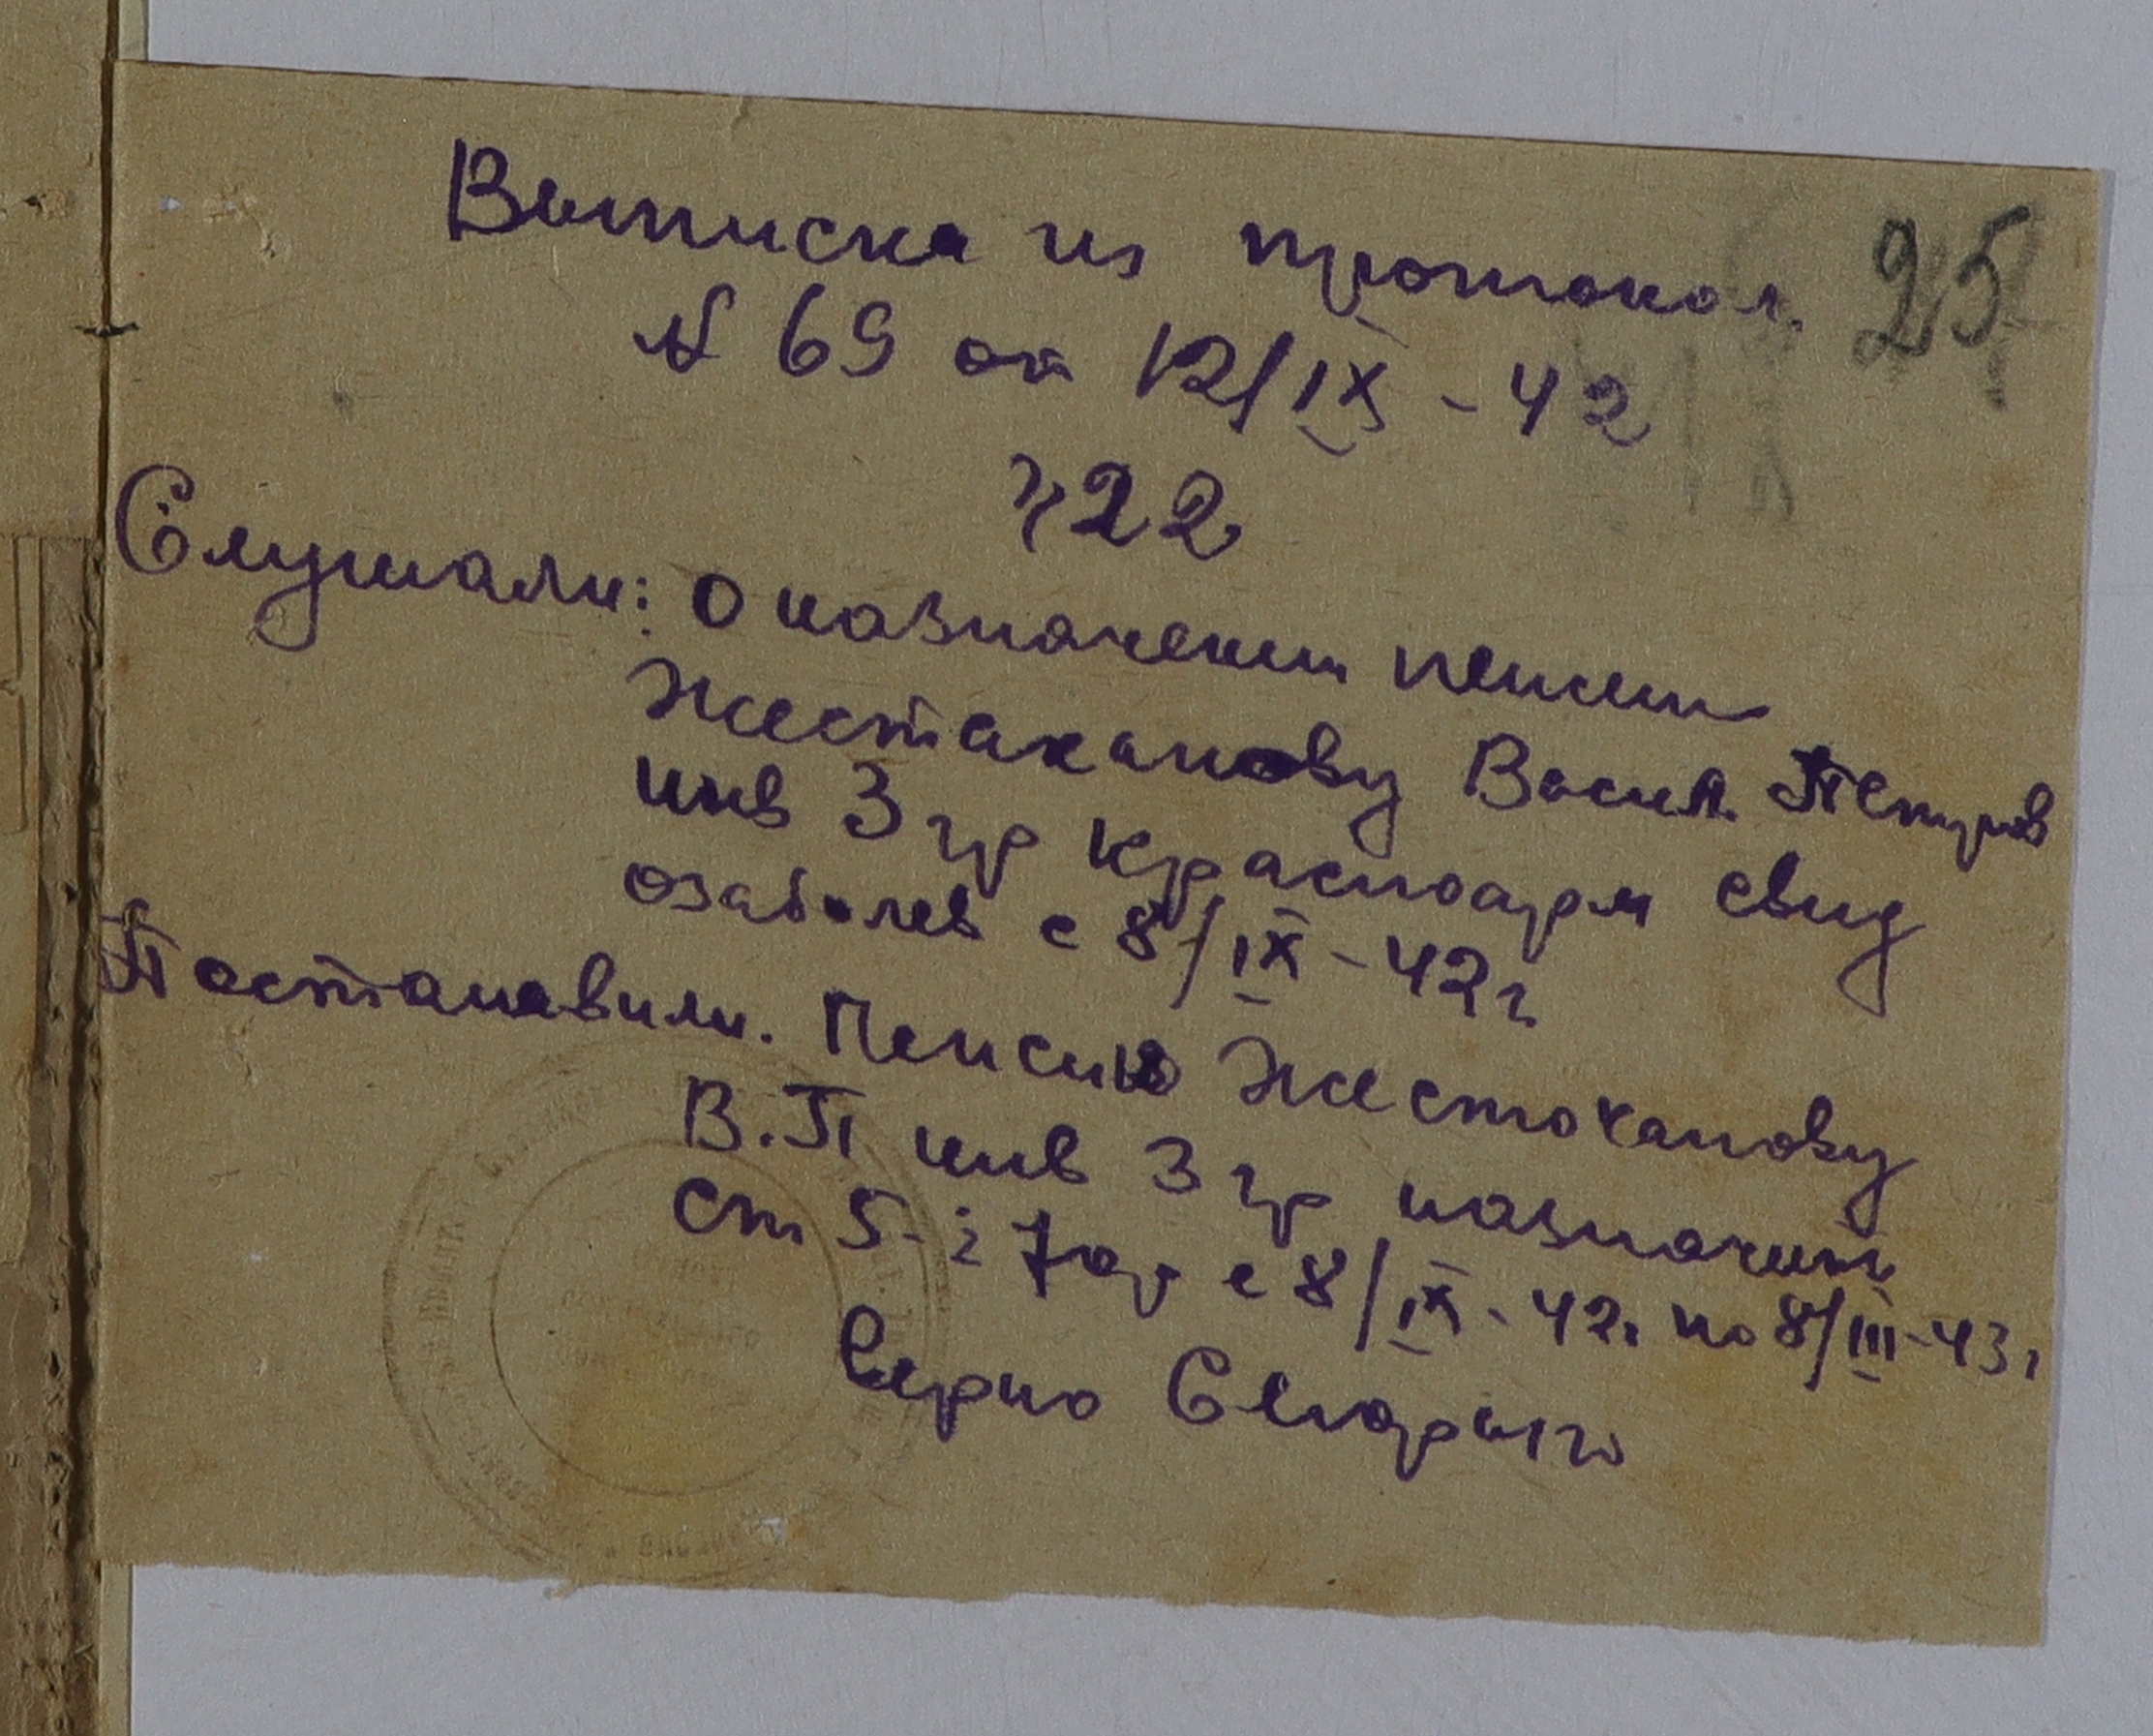 Выписка из протокол.
25
№ 69 от 12/IX - 42
§ 22
Слушали: о назначении пенсии
Жестаканову Васил. Петров
инв 3 гр красноарм свид
озаболев с 8/IX - 42 г.
Постановили. Пенсию Жестоканову
В. П инв 3 гр назначить
ст 5 - 2 7 с 8/IX - 42 г. по 8/III - 43 г
Верно